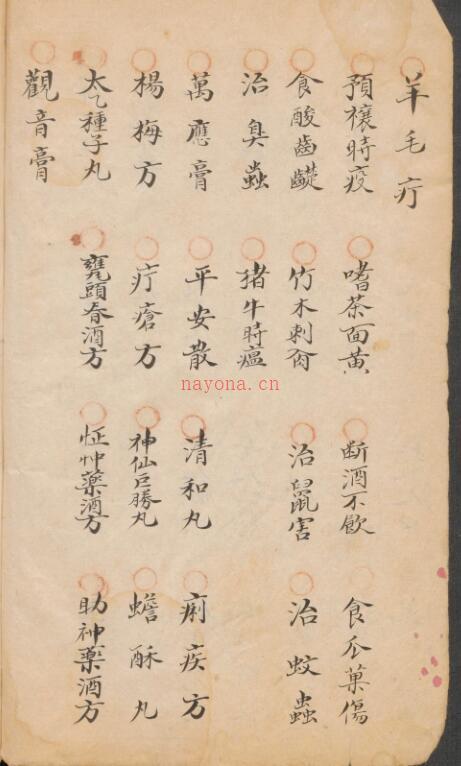 羊毛疔
預禳時疫 嗜茶面黃 断酒不飲 食瓜菓傷
食酸齒齼 竹木刺肉 治鼠害 治蚊蟲
治臭蟲 猪牛時瘟
萬應膏 平安散 清和丸 痢疾方
楊梅方 疔瘡方 神仙巨勝丸 蟾酥丸
太乙種子丸 甕頭春酒方 怔忡藥酒方 助神藥酒方
觀音膏
nayona.cn